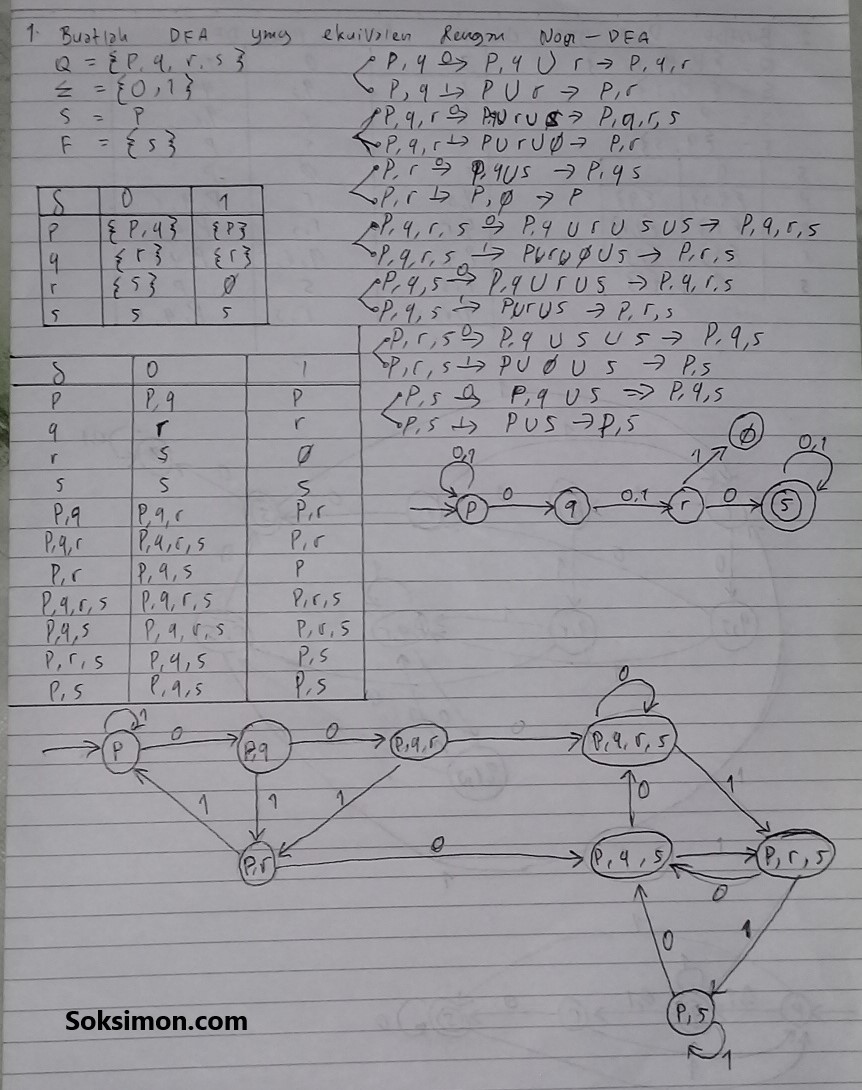 1. Buatlah DFA yang ekuivalen dengan Non-DFA
Q = {P, q, r, s}
Σ = {0, 1}
S = P
F = {s}
δ 0 1
P {P, q} {P}
q {r} {r}
r {s} ∅
s s s
δ 0 1
P P, q P
q r r
r s ∅
s s s
P, q P, q, r P, r
P, q, r P, q, r, s P, r
P, r P, q, s P
P, q, r, s P, q, r, s P, r, s
P, q, s P, q, r, s P, r, s
P, r, s P, q, s P, s
P, s P, q, s P, s
P, q 0→ P, q ∪ r → P, q, r
P, q 1→ P ∪ r → P, r
P, q, r 0→ P, q ∪ r ∪ s → P, q, r, s
P, q, r 1→ P ∪ r ∪ ∅ → P, r
P, r 0→ P, q ∪ s → P, q s
P, r 1→ P, ∅ → P
P, q, r, s 0→ P, q ∪ r ∪ s ∪ s → P, q, r, s
P, q, r, s 1→ P ∪ r ∪ ∅ ∪ s → P, r, s
P, q, s 0→ P, q ∪ r ∪ s → P, q, r, s
P, q, s 1→ P ∪ r ∪ s → P, r, s
P, r, s 0→ P, q ∪ s ∪ s → P, q, s
P, r, s 1→ P ∪ ∅ ∪ s → P, s
P, s 0→ P, q ∪ s => P, q, s
P, s 1→ P ∪ s → P, s
∅
0,1 1 0,1
P 0 q 0,1 r 0 s
1 0
P 0 P,q 0 P,q,r 0 P, q, r, s
1 1 1 0 1
P,r 0 P, q, s 1 P, r, s
0
0 1
P, s
1
Soksimon.com